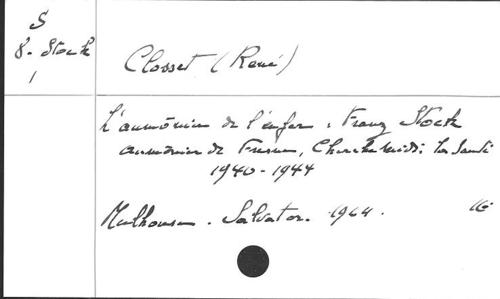 S
8- Stock
1
Closset (René)
L'aumônier de l'enfer. Franz Stock
aumônier de Fresnes, Cherche midi, La Santé
1940-1944
Mulhouse. Salvator. 1964.